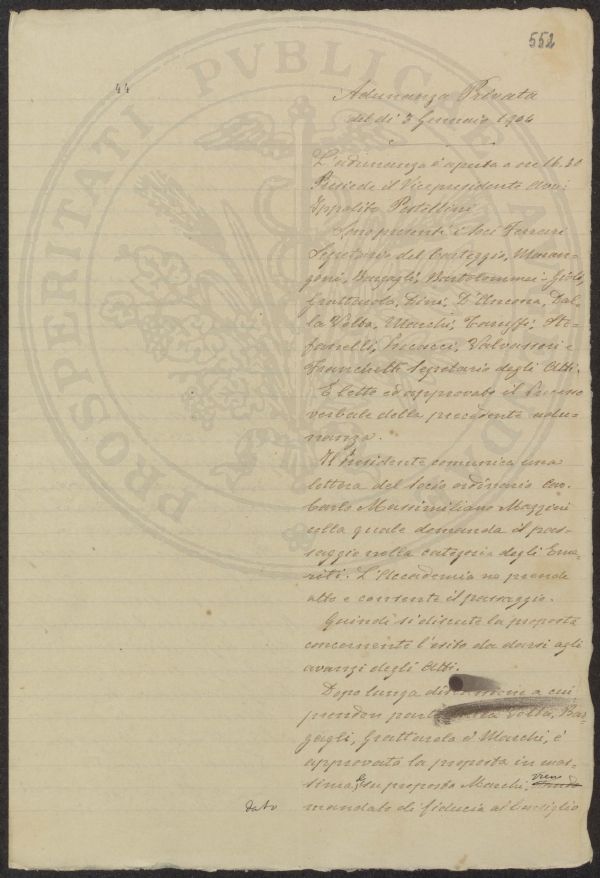 552
44
Adunanza Privata
del dì 3 Gennaio 1904
L'adunanza è aperta a ore 16.30
Presiede il Vicepresidente Avv:
Ippolito Pestellini
Sono presenti i Soci Ferrari
Segretario del Carteggio, Maran-
goni, Bargagli, Bartolommei-Gioli,
Grattarola, Dini, D'Ancona, Dal-
la Volta, Marchi, Caruffi, Ste-
fanelli, Pucacci, Valvassori e
Franchetti Segretario degli Atti.
È letto ed approvato il Processo
verbale della precedente adu-
nanza.
Il Presidente comunica una
lettera del Socio ordinario Cav.
Carlo Massimiliano Mazzini
colla quale domanda il pas-
saggio nella categoria degli Eme-
riti. L'Accademia ne prende
atto e consente il passaggio.
Quindi si discute la proposta
concernente l'esito da darsi agli
avanzi degli Atti.
Dopo lunga discussione a cui
prendon parte Dalla Volta, Bar-
gagli, Grattarola e Marchi, è
approvata la proposta in mas-
sima, e su proposta Marchi, vien
dato mandato di fiducia al Consiglio
PROSPERITATI PVBLICAE AVGENDAE